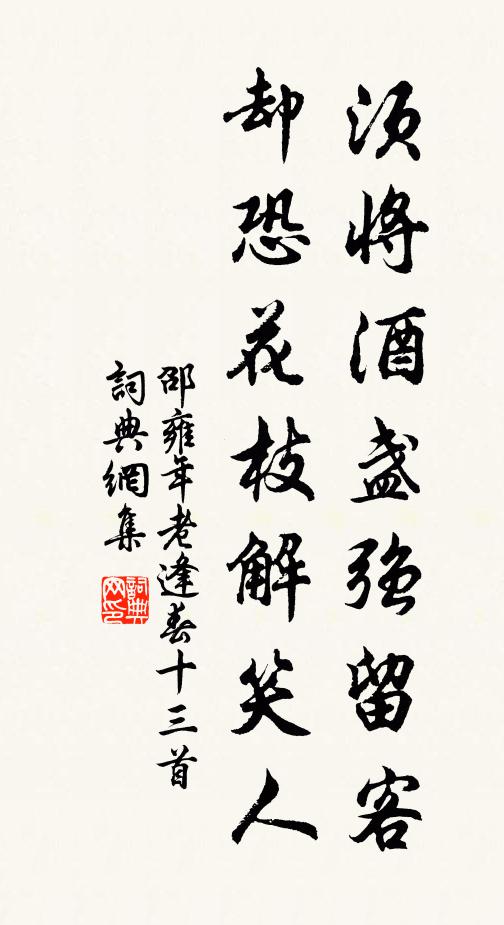 須將酒盞強留客
却恐花枝解笑人
邵雍年老逢春十三首
詞典網集
詞典網印